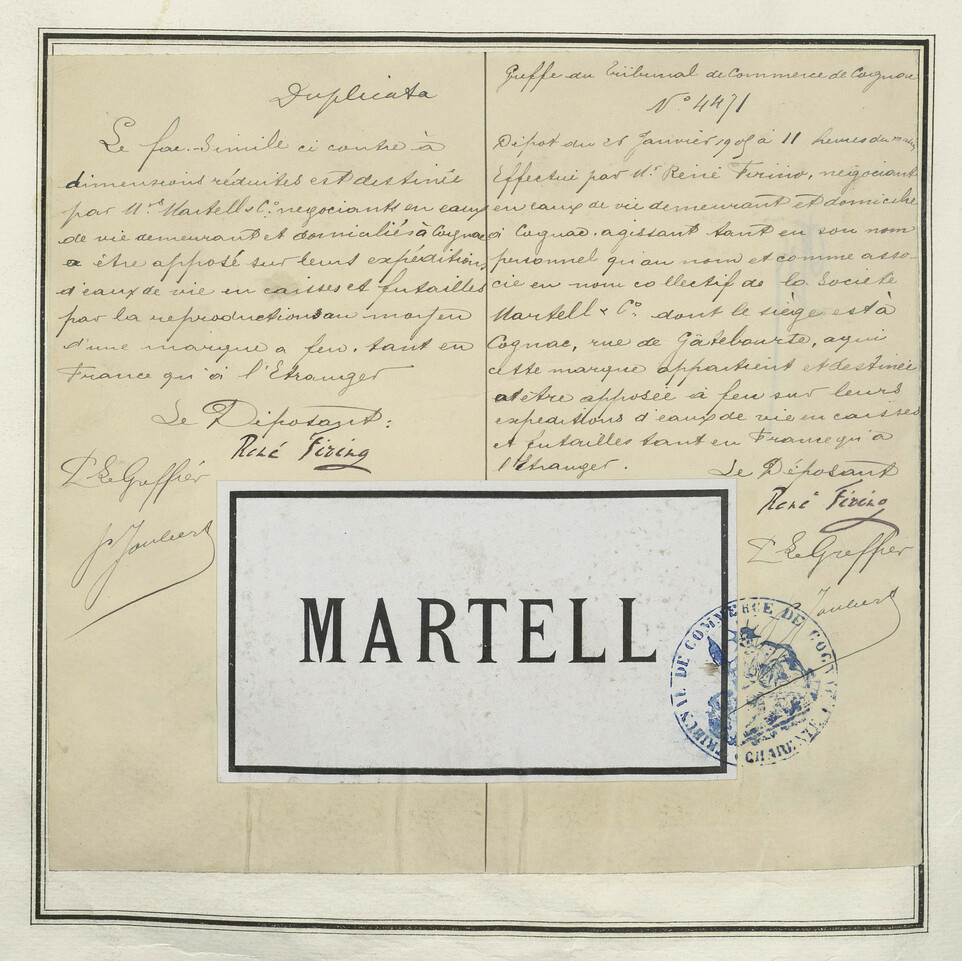 Duplicata
Le fac-Simile ci contre à
dimensions réduites est destinée
par Mrs Martell & Co. negociants en eaux
de vie demeurant et domicilés à Cognac
a être apposé sur leurs expéditions
d'eaux de vie en caisses et futailles
par la reproduction au moyen
d'une marque a feu. tant en
France qu'à l'Etranger
Le Déposant:
René Firino
Le Greffier
Joubert
Greffe du Tribunal de Commerce de Cognac
No 4471
Dépôt du Janvier à 11 heures du
Effectué par Mr René Firino, négociant
en eaux de vie demeurant et domicilié
à Cognac. agissant tant en son nom
personnel qu'au nom et comme asso-
cié en nom collectif de la Société
Martell & Co. dont le siège est à
Cognac, rue de Gâtebourse, a qui
cette marque appartient et destinée
a être apposée à feu sur leurs
expeditions d'eaux de vie en caisses
et futailles tant en France qu'à
l'Etranger.
Le Déposant
René Firino
Le Greffier
Joubert
MARTELL
TRIBUNAL DE COMMERCE DE COGNAC
CHARENTE